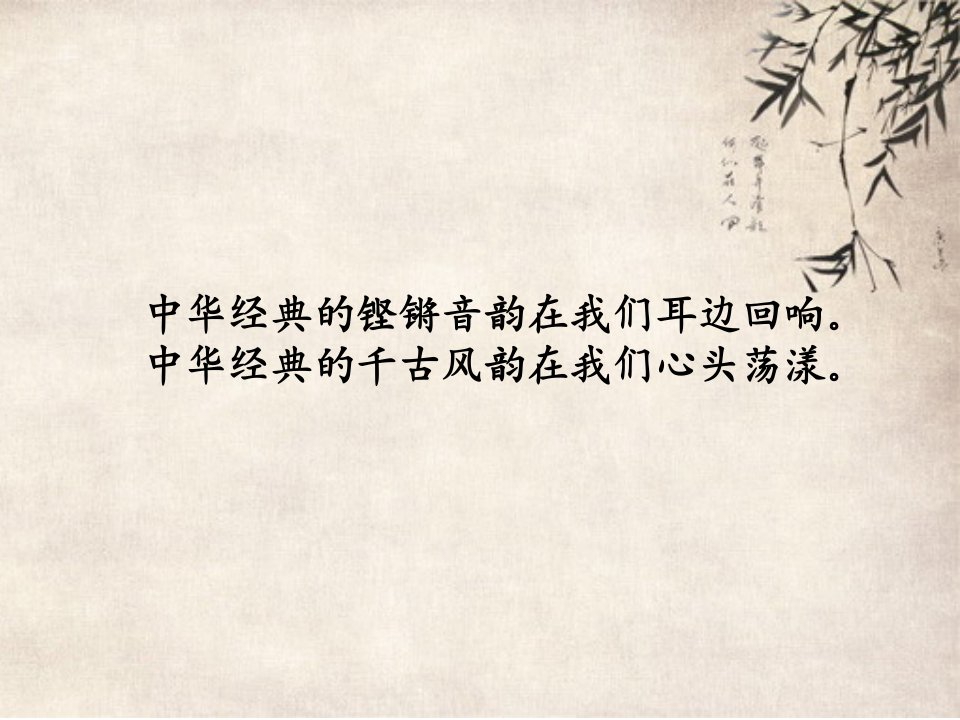 中华经典的铿锵音韵在我们耳边回响。
中华经典的千古风韵在我们心头荡漾。